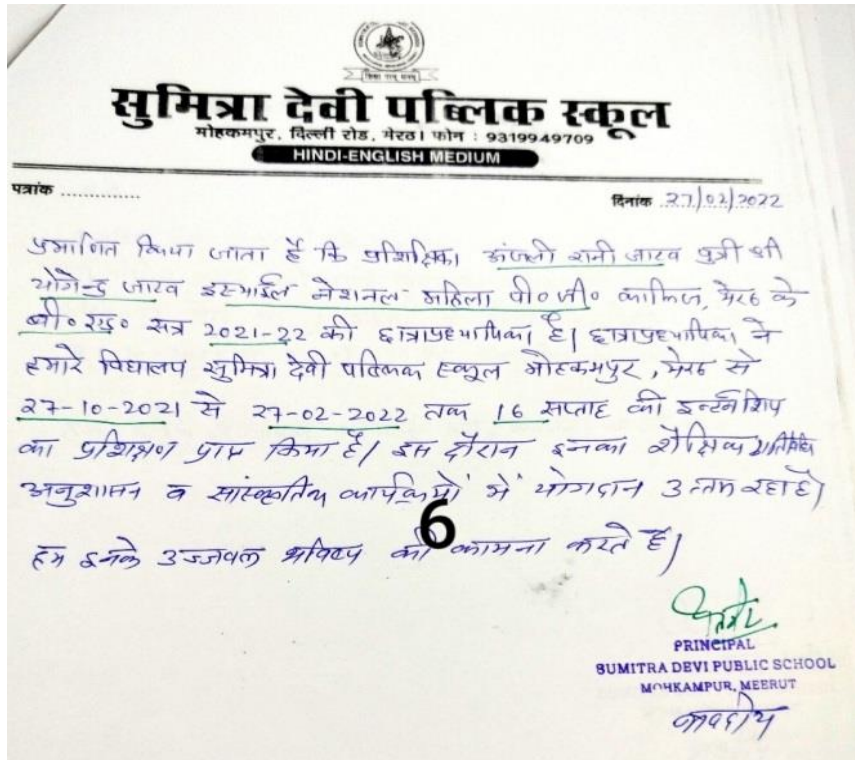 सुमित्रा देवी पब्लिक स्कूल
मोहकमपुर, दिल्ली रोड, मेरठ। फोन : 9319949709
HINDI-ENGLISH MEDIUM
पत्रांक ..............
दिनांक 27/02/2022
प्रमाणित किया जाता है कि प्रशिक्षिका अंजली रानी जाटव पुत्री श्री
योगेन्द्र जाटव इस्माईल नेशनल महिला पी०जी० कालिज, मेरठ के
बी० एड० सत्र 2021-22 की छात्राध्यापिका है। छात्राध्यापिका ने
हमारे विद्यालय सुमित्रा देवी पब्लिक स्कूल मोहकमपुर, मेरठ से
27-10-2021 से 27-02-2022 तक 16 सप्ताह की इन्टर्नशिप
का प्रशिक्षण प्राप्त किया है। इस दौरान इनका शैक्षिक गतिविधि
अनुशासन व सांस्कृतिक कार्यक्रमों में योगदान उत्तम रहा है।
6
हम इनके उज्जवल भविष्य की कामना करते है।
PRINCIPAL
SUMITRA DEVI PUBLIC SCHOOL
MOHKAMPUR, MEERUT
भवदीय